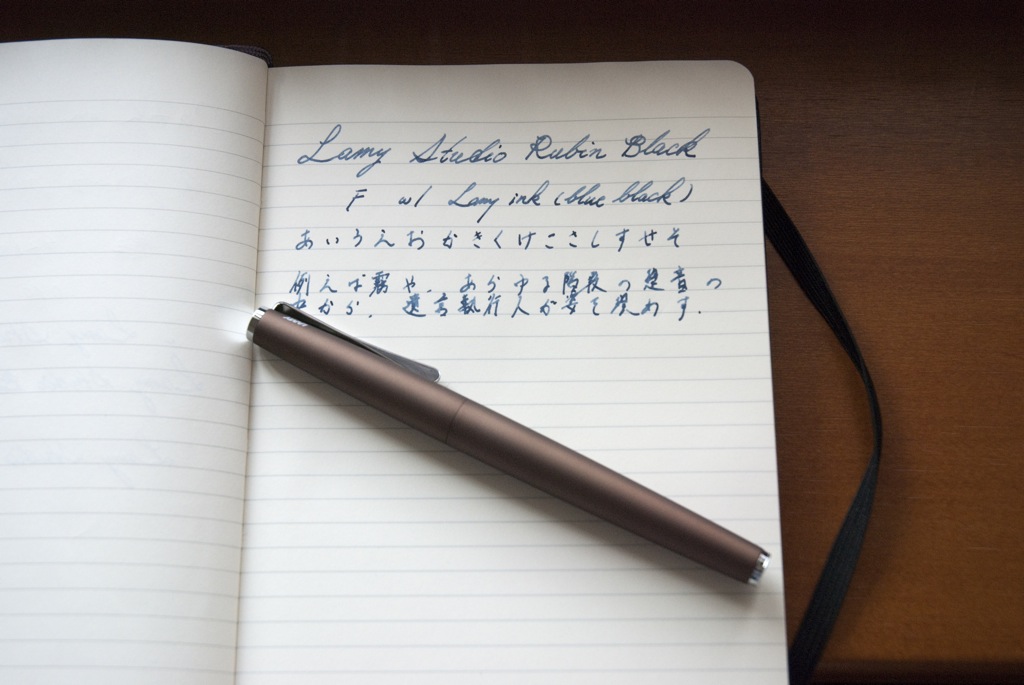 Lamy Studio Rubin Black
F w/ Lamy ink (blue black)
あいうえおかきくけこさしすせそ
例えば霧や、あらゆる階段の跫音の
中から、遺言執行人が姿を現わす.